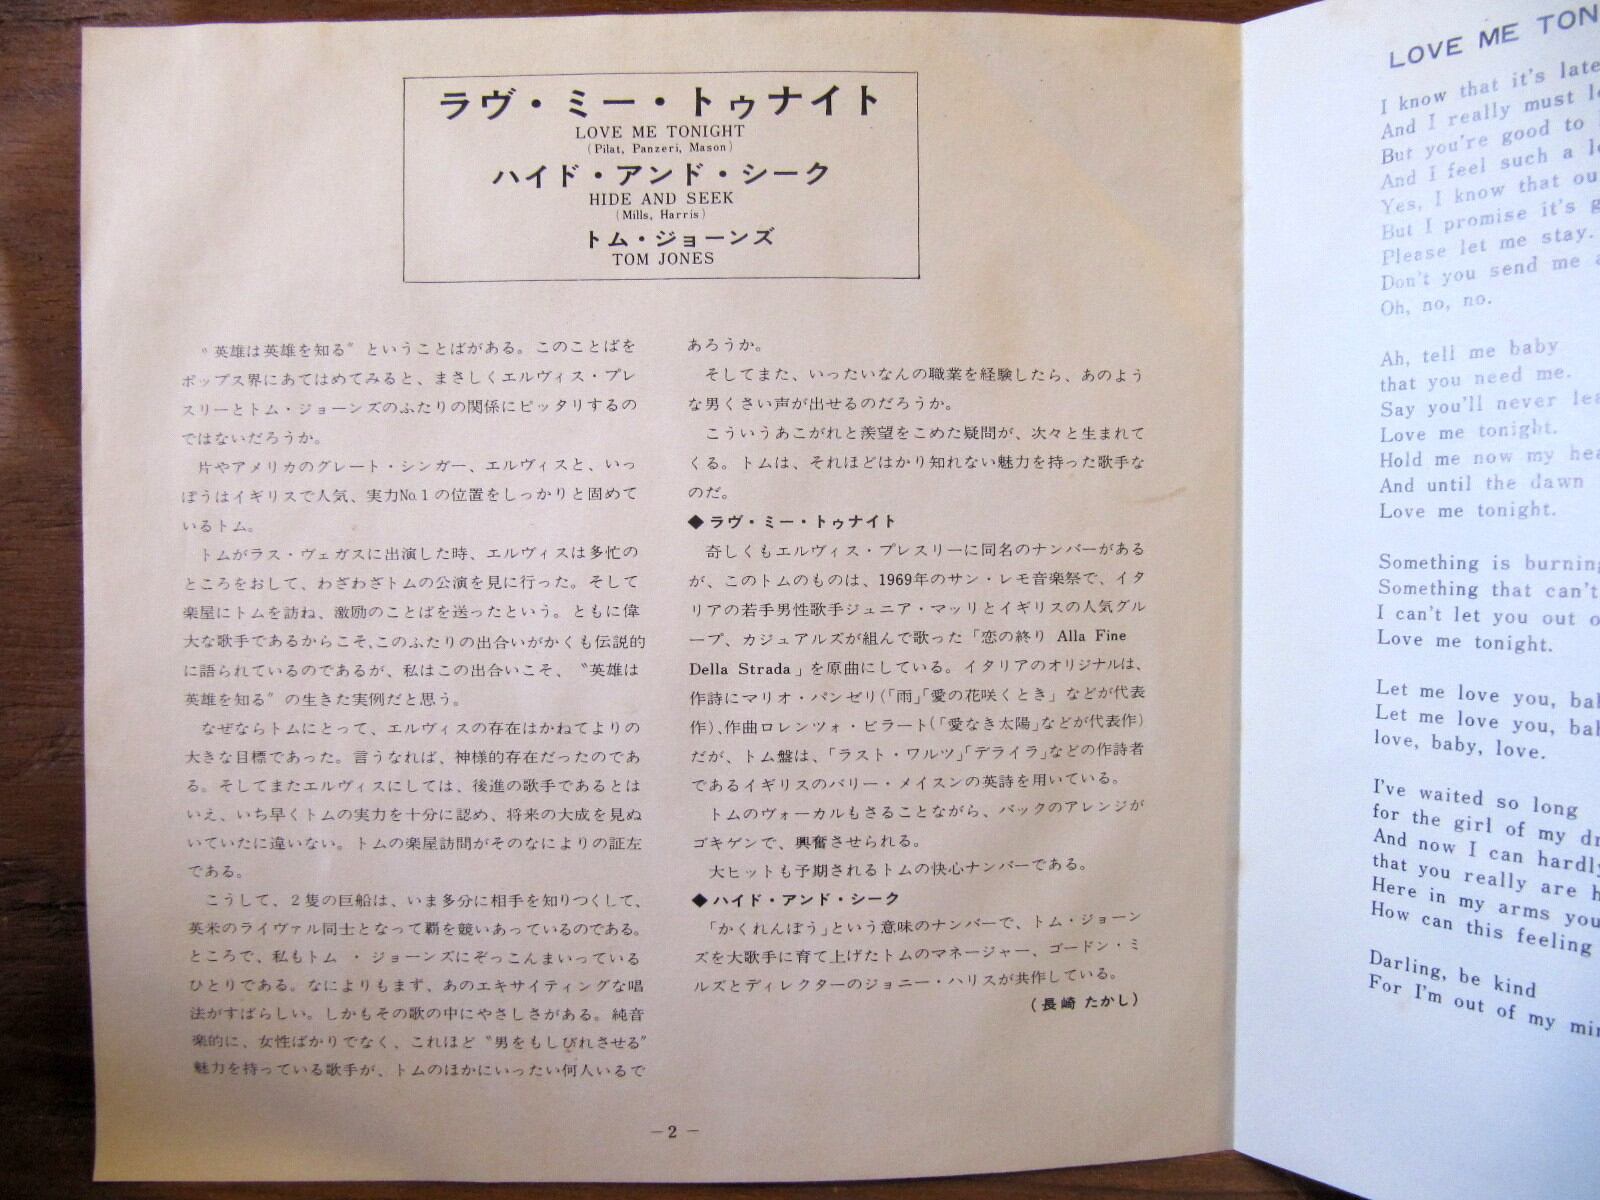 ラヴ・ミー・トゥナイト
LOVE ME TONIGHT
(Pilat, Panzeri, Mason)
ハイド・アンド・シーク
HIDE AND SEEK
(Mills, Harris)
トム・ジョーンズ
TOM JONES
〝英雄は英雄を知る〟ということばがある。このことばを
ポップス界にあてはめてみると、まさしくエルヴィス・プレ
スリーとトム・ジョーンズのふたりの関係にピッタリするの
ではないだろうか。
片やアメリカのグレート・シンガー、エルヴィスと、いっ
ぽうはイギリスで人気、実力No.1の位置をしっかりと固めて
いるトム。
トムがラス・ヴェガスに出演した時、エルヴィスは多忙の
ところをおして、わざわざトムの公演を見に行った。そして
楽屋にトムを訪ね、激励のことばを送ったという。ともに偉
大な歌手であるからこそ、このふたりの出合いがかくも伝説的
に語られているのであるが、私はこの出合いこそ、〝英雄は
英雄を知る〟の生きた実例だと思う。
なぜならトムにとって、エルヴィスの存在はかねてよりの
大きな目標であった。言うなれば、神様的存在だったのであ
る。そしてまたエルヴィスにしては、後進の歌手であるとは
いえ、いち早くトムの実力を十分に認め、将来の大成を見ぬ
いていたに違いない。トムの楽屋訪問がそのなによりの証左
である。
こうして、2隻の巨船は、いま多分に相手を知りつくして、
英米のライヴァル同士となって覇を競いあっているのである。
ところで、私もトム・ジョーンズにぞっこんまいっている
ひとりである。なによりもまず、あのエキサイティングな唱
法がすばらしい。しかもその歌の中にやさしさがある。純音
楽的に、女性ばかりでなく、これほど〝男をもしびれさせる〟
魅力を持っている歌手が、トムのほかにいったい何人いるで
あろうか。
そしてまた、いったいなんの職業を経験したら、あのよう
な男くさい声が出せるのだろうか。
こういうあこがれと羨望をこめた疑問が、次々と生まれて
くる。トムは、それほどはかり知れない魅力を持った歌手な
のだ。
◆ラヴ・ミー・トゥナイト
奇しくもエルヴィス・プレスリーに同名のナンバーがある
が、このトムのものは、1969年のサン・レモ音楽祭で、イタ
リアの若手男性歌手ジュニア・マッリとイギリスの人気グル
ープ、カジュアルズが組んで歌った「恋の終り Alla Fine
Della Strada」を原曲にしている。イタリアのオリジナルは、
作詩にマリオ・パンゼリ(「雨」「愛の花咲くとき」などが代表
作)、作曲ロレンツォ・ピラート(「愛なき太陽」などが代表作)
だが、トム盤は、「ラスト・ワルツ」「デライラ」などの作詩者
であるイギリスのバリー・メイスンの英詩を用いている。
トムのヴォーカルもさることながら、バックのアレンジが
ゴキゲンで、興奮させられる。
大ヒットも予期されるトムの快心ナンバーである。
◆ハイド・アンド・シーク
「かくれんぼう」という意味のナンバーで、トム・ジョーン
ズを大歌手に育て上げたトムのマネージャー、ゴードン・ミ
ルズとディレクターのジョニー・ハリスが共作している。
(長崎 たかし)
−2−
LOVE ME TON
I know that it's late
And I really must
But you're good to
And I feel such a
Yes, I know that
But I promise it's
Please let me stay.
Don't you send me
Oh, no, no.
Ah, tell me baby
that you need me.
Say you'll never
Love me tonight.
Hold me now my
And until the dawn
Love me tonight.
Something is burning
Something that can't
I can't let you out
Love me tonight.
Let me love you,
Let me love you,
love, baby, love.
I've waited so long
for the girl of my
And now I can hardly
that you really are
Here in my arms
How can this feeling
Darling, be kind
For I'm out of my